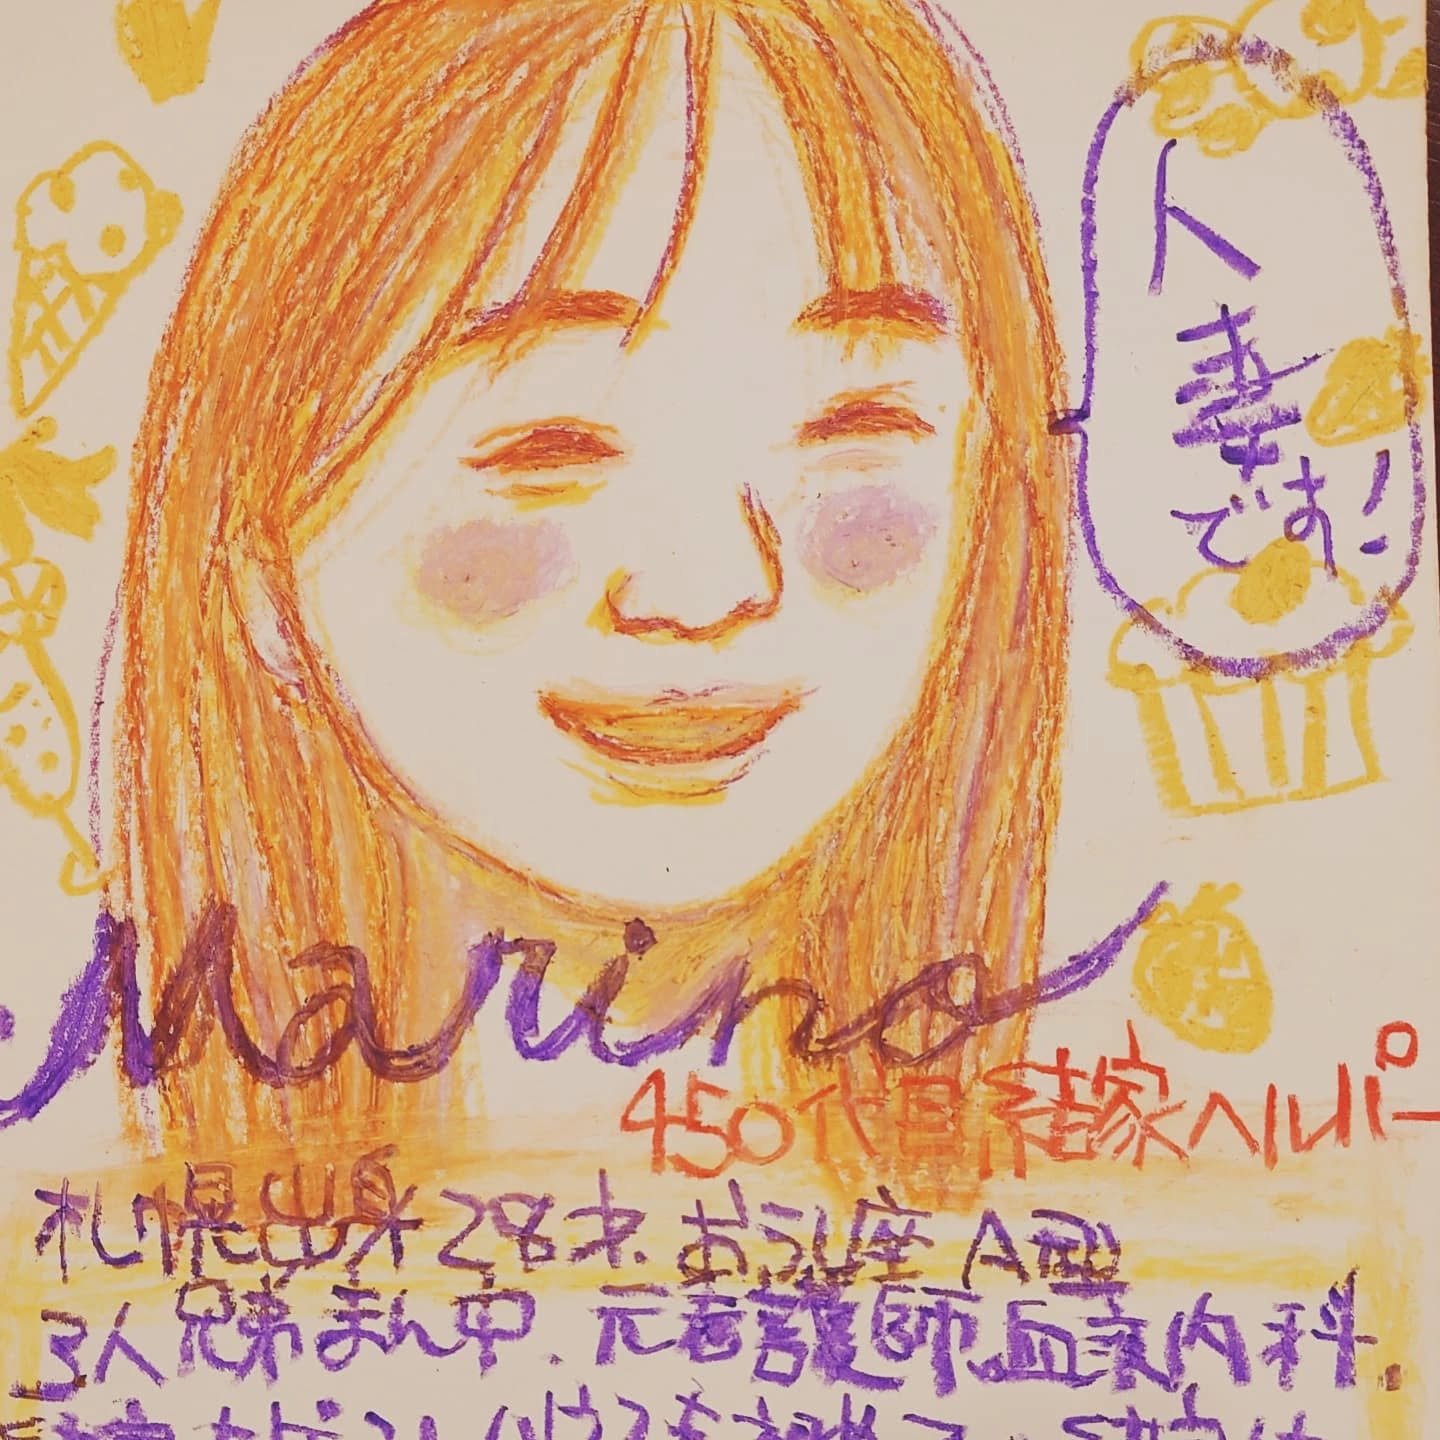 人
妻
です!
Marino
450代目結家ヘルパー
札幌出身28才.おうし座 A型
3人兄弟まん中.元看護師.血液内科.